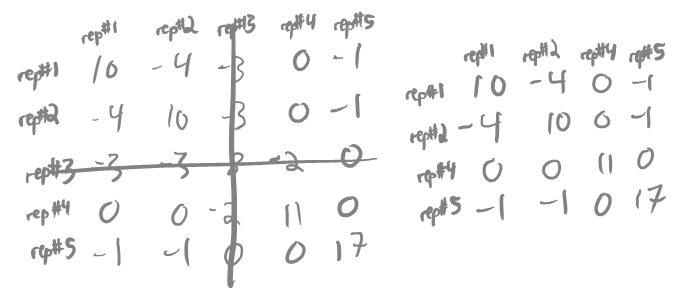 rep#1 rep#2 rep#3 rep#4 rep#5
rep#1 10 -4 -3 0 -1
rep#2 -4 10 -3 0 -1
rep#3 -3 -3 -2 0
rep#4 0 0 -2 11 0
rep#5 -1 -1 0 0 17
rep#1 rep#2 rep#4 rep#5
rep#1 10 -4 0 -1
rep#2 -4 10 0 -1
rep#4 0 0 11 0
rep#5 -1 -1 0 17